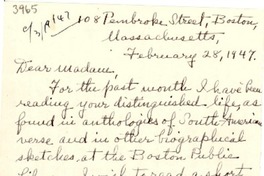 3965
c/3/9/47
108 Pembroke Street, Boston,
Massachusetts,
February 28, 1947.
Dear Madam,
For the past month I have been
reading your distinguished life, as
found in anthologies of South American
verse and in other biographical
sketches, at the Boston Public
to read a short